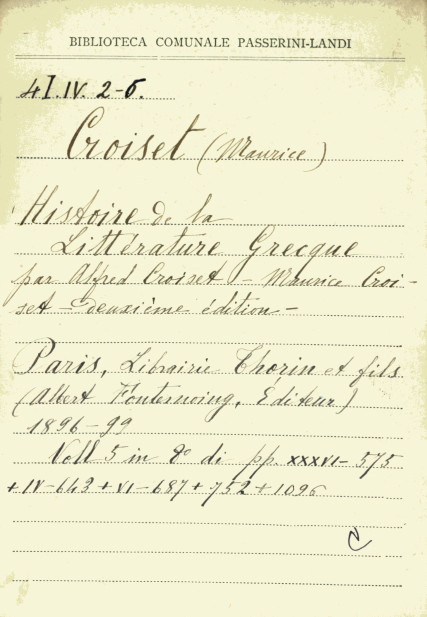 BIBLIOTECA COMUNALE PASSERINI-LANDI
4I.IV. 2-6.
Croiset (Maurice)
Histoire de la
Littérature Grecque
par Alfred Croiset - Maurice Croi-
set - deuxième édition -
Paris, Librairie Thorin et fils
(Albert Fontemoing, Éditeur)
1896-99
Voll 5 in 8º di pp. XXXVI-575
+IV-643+VI-687+752+1096